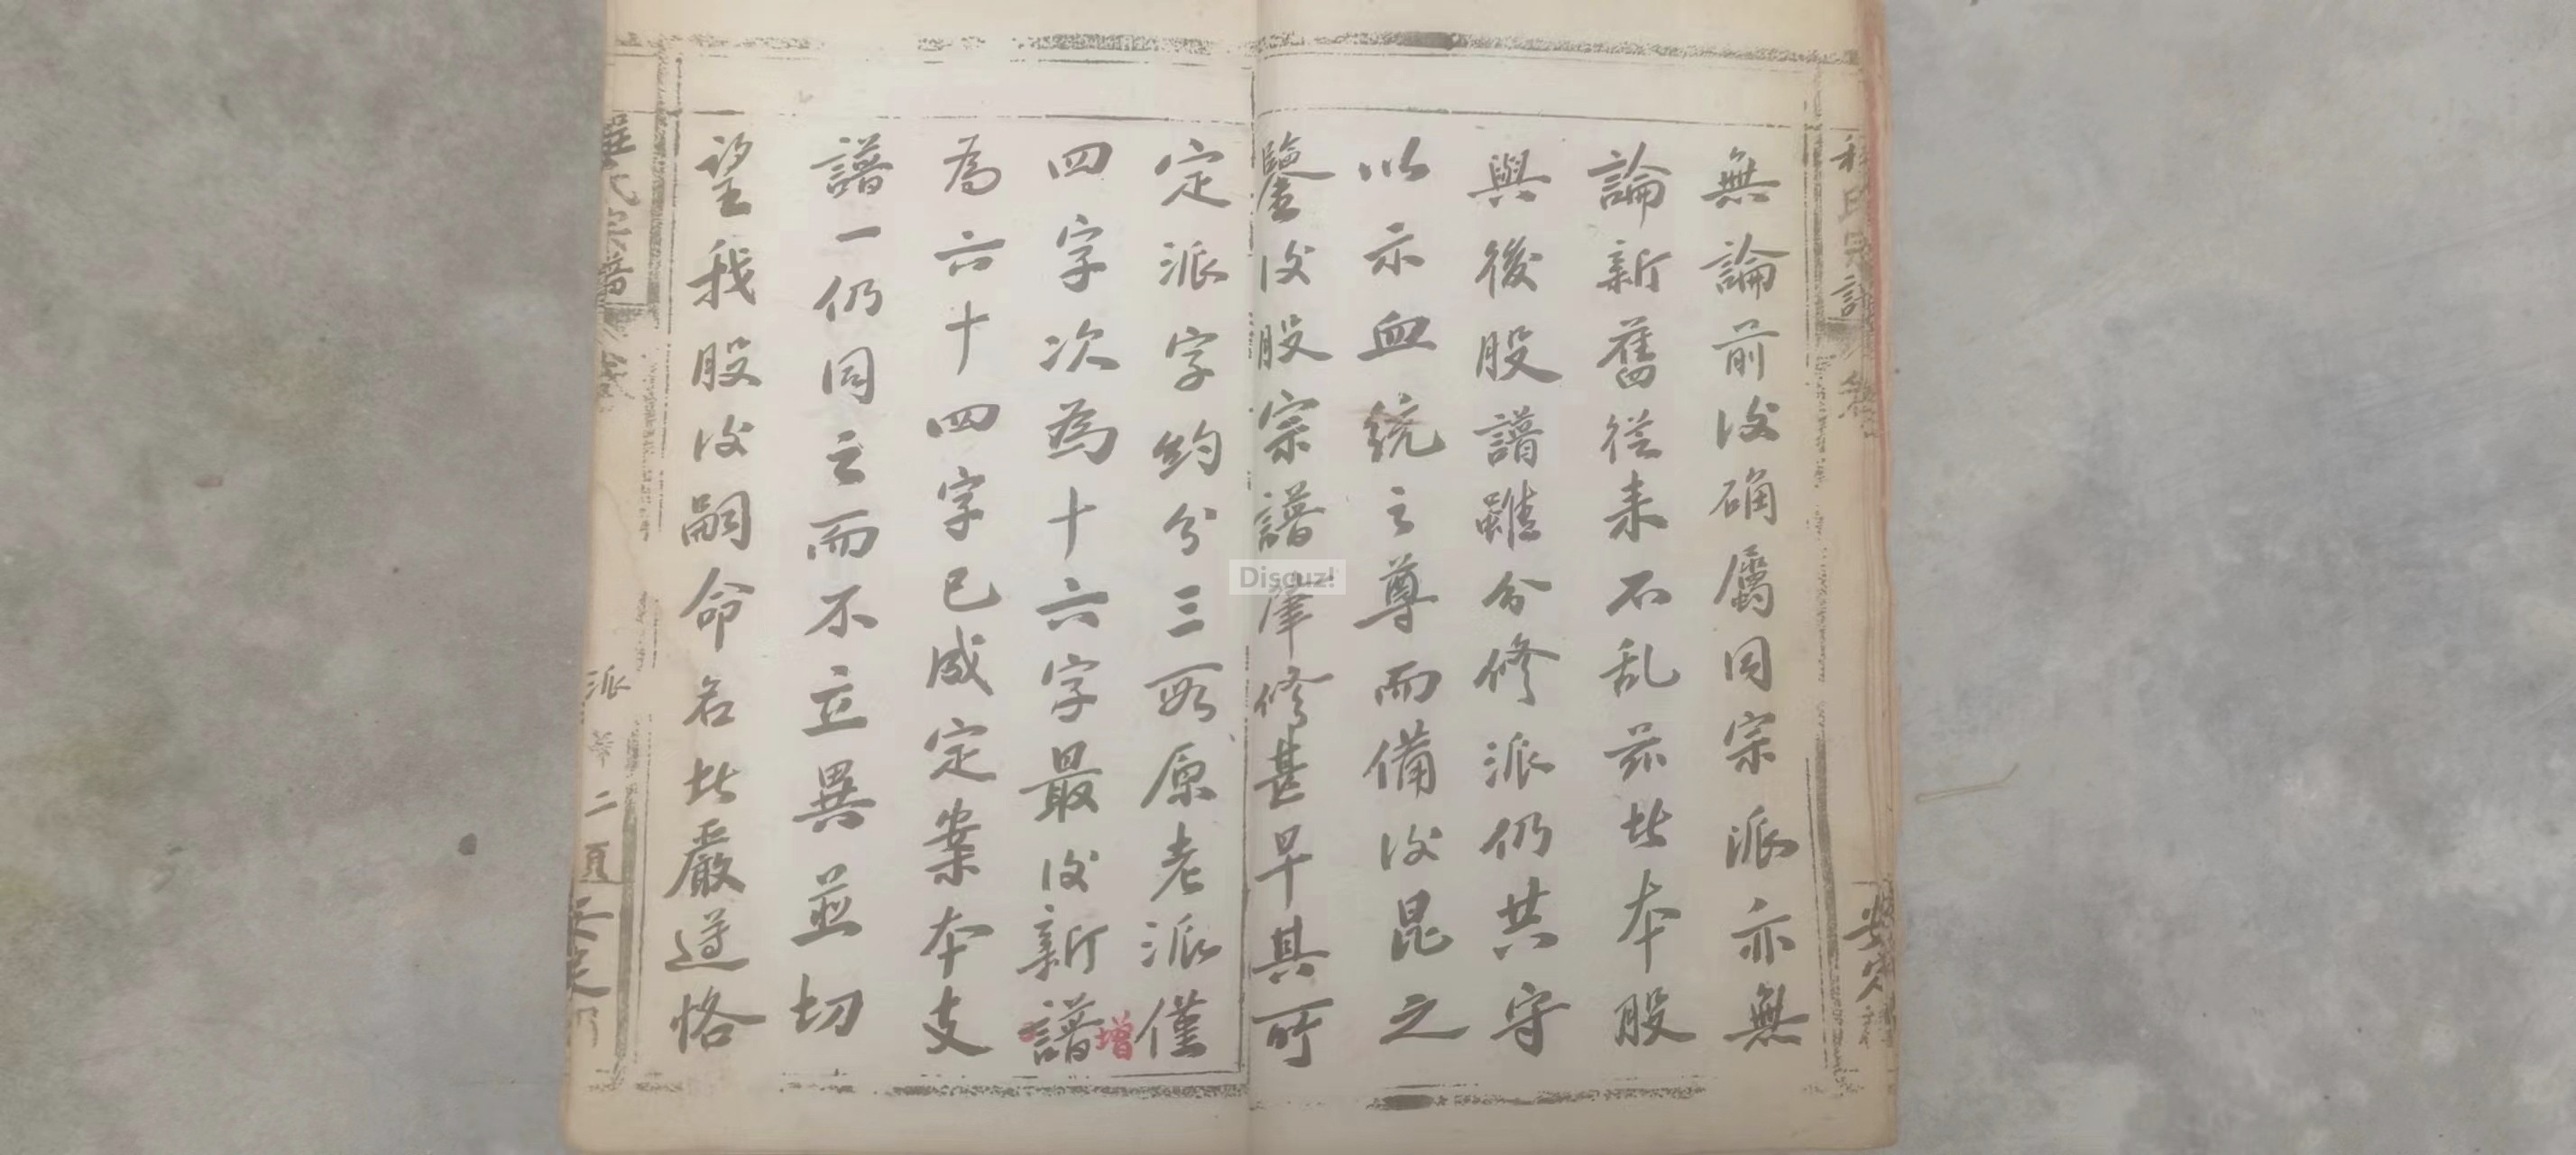 無論前后确屬同宗派亦無
論新舊從来不乱茲照本股
與後股譜雖分修派仍共守
以示血統之尊而備后昆之
鑒后股宗譜肇修甚早其所
定派字約分三股原老派僅
四字次為十六字最后新譜增
為六十四字已成定案本支
譜一仍同之而不立異並切
望我股后嗣命名照嚴遵恪
氏宗譜
派 第二頁
Discuz!